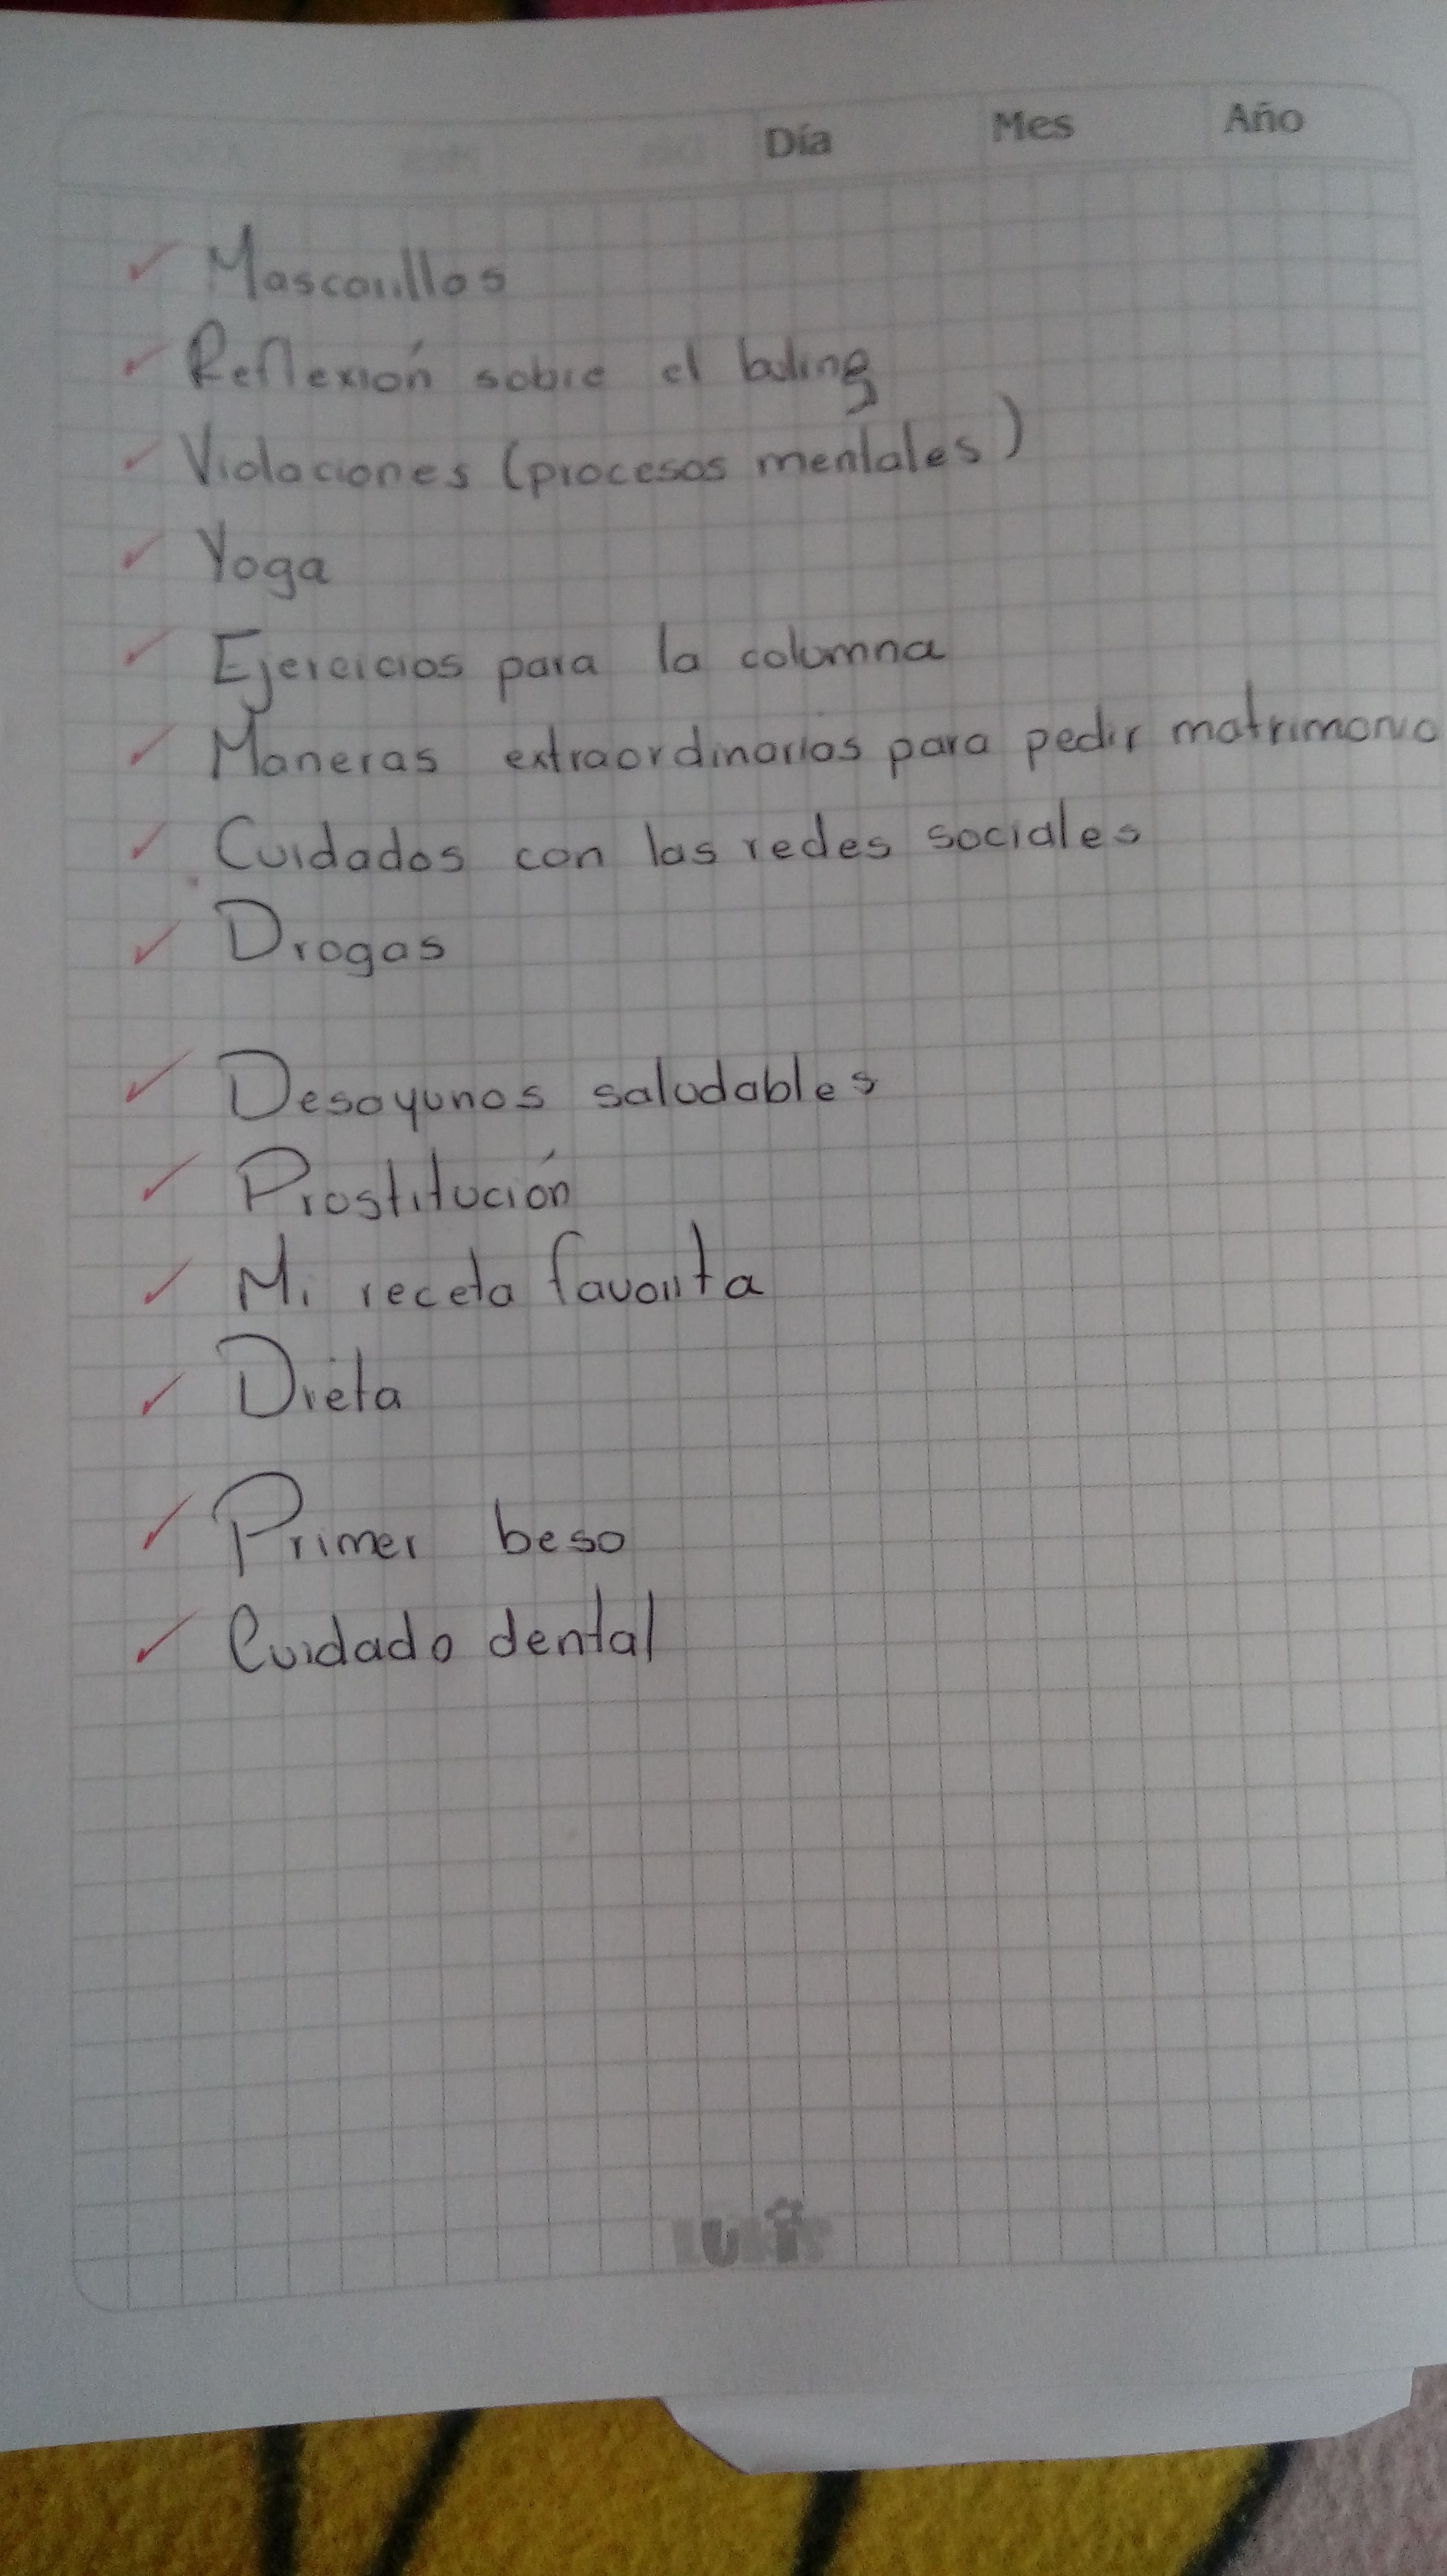 Día Mes Año
✓ Mascarillas
✓ Reflexión sobre el buling
✓ Violaciones (procesos mentales)
✓ Yoga
✓ Ejercicios para la columna
✓ Maneras extraordinarias para pedir matrimonio
✓ Cuidados con las redes sociales
✓ Drogas
✓ Desayunos saludables
✓ Prostitución
✓ Mi receta favorita
✓ Dieta
✓ Primer beso
✓ Cuidado dental